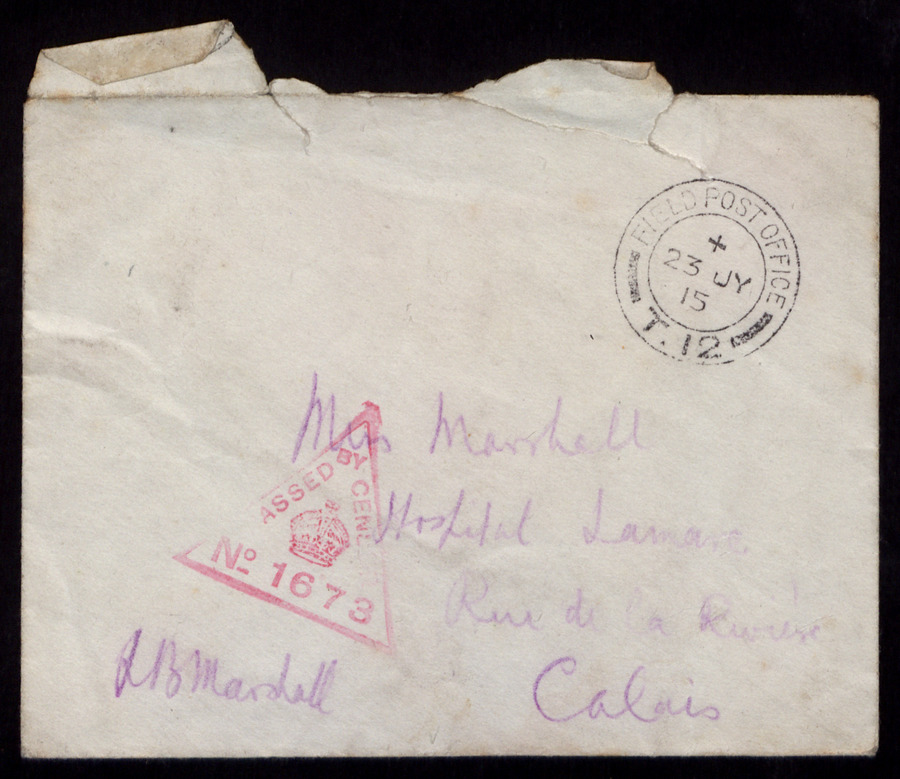 FIELD POST OFFICE
+
23 JY
15
T.12
Miss Marshall
ASSED BY CEN
Hospital Lamarc
No 1673
Rue de la Rivière
Marshall
Calais